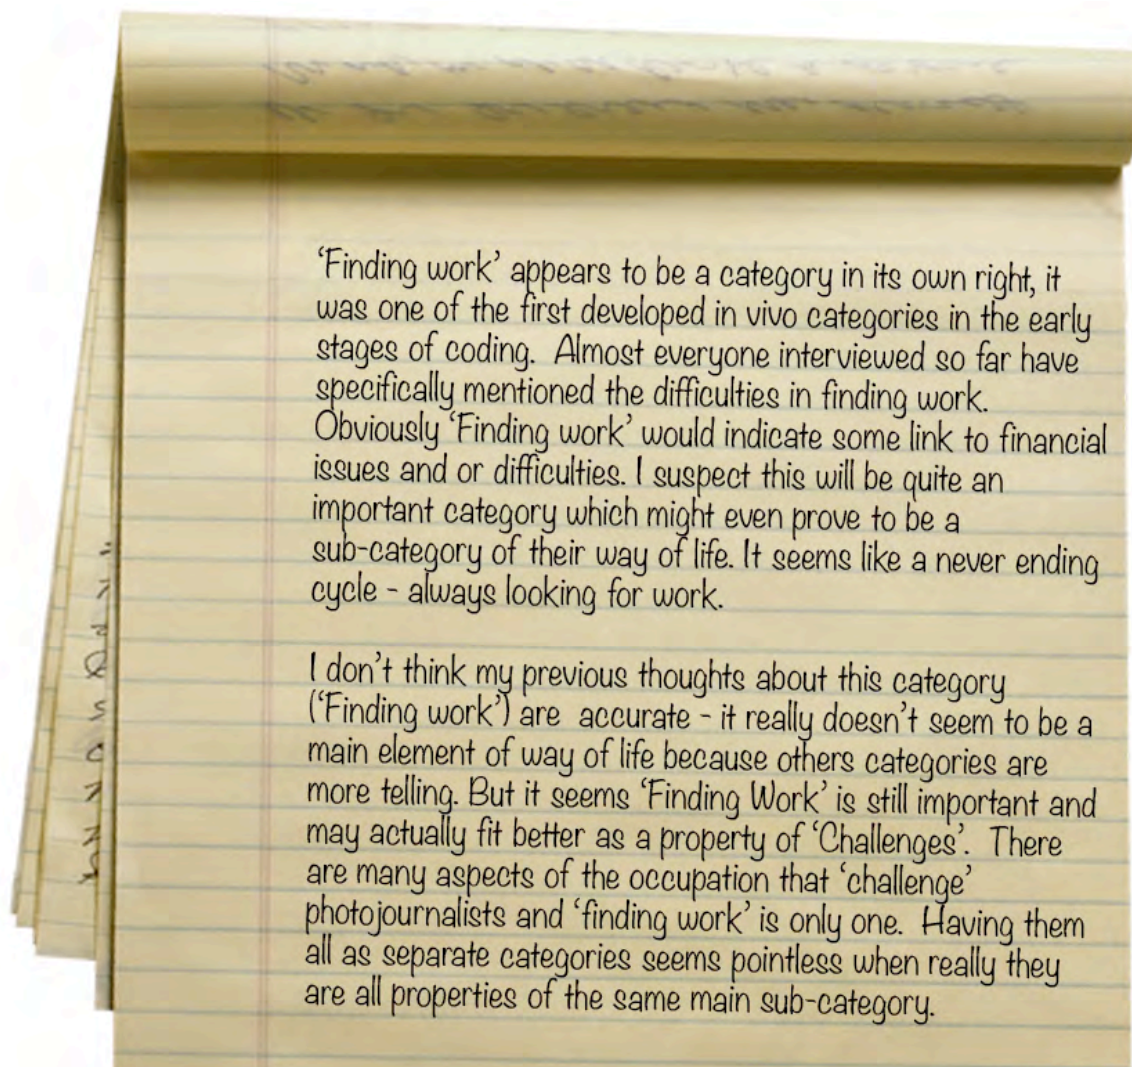 ‘Finding work’ appears to be a category in its own right, it
was one of the first developed in vivo categories in the early
stages of coding.  Almost everyone interviewed so far have
specifically mentioned the difficulties in finding work.
Obviously ‘Finding work’ would indicate some link to financial
issues and or difficulties. I suspect this will be quite an
important category which might even prove to be a
sub-category of their way of life. It seems like a never ending
cycle - always looking for work.

I don’t think my previous thoughts about this category
(‘Finding work’) are  accurate - it really doesn’t seem to be a
main element of way of life because others categories are
more telling. But it seems ‘Finding Work’ is still important and
may actually fit better as a property of ‘Challenges’.  There
are many aspects of the occupation that ‘challenge’
photojournalists and ‘finding work’ is only one.  Having them
all as separate categories seems pointless when really they
are all properties of the same main sub-category.